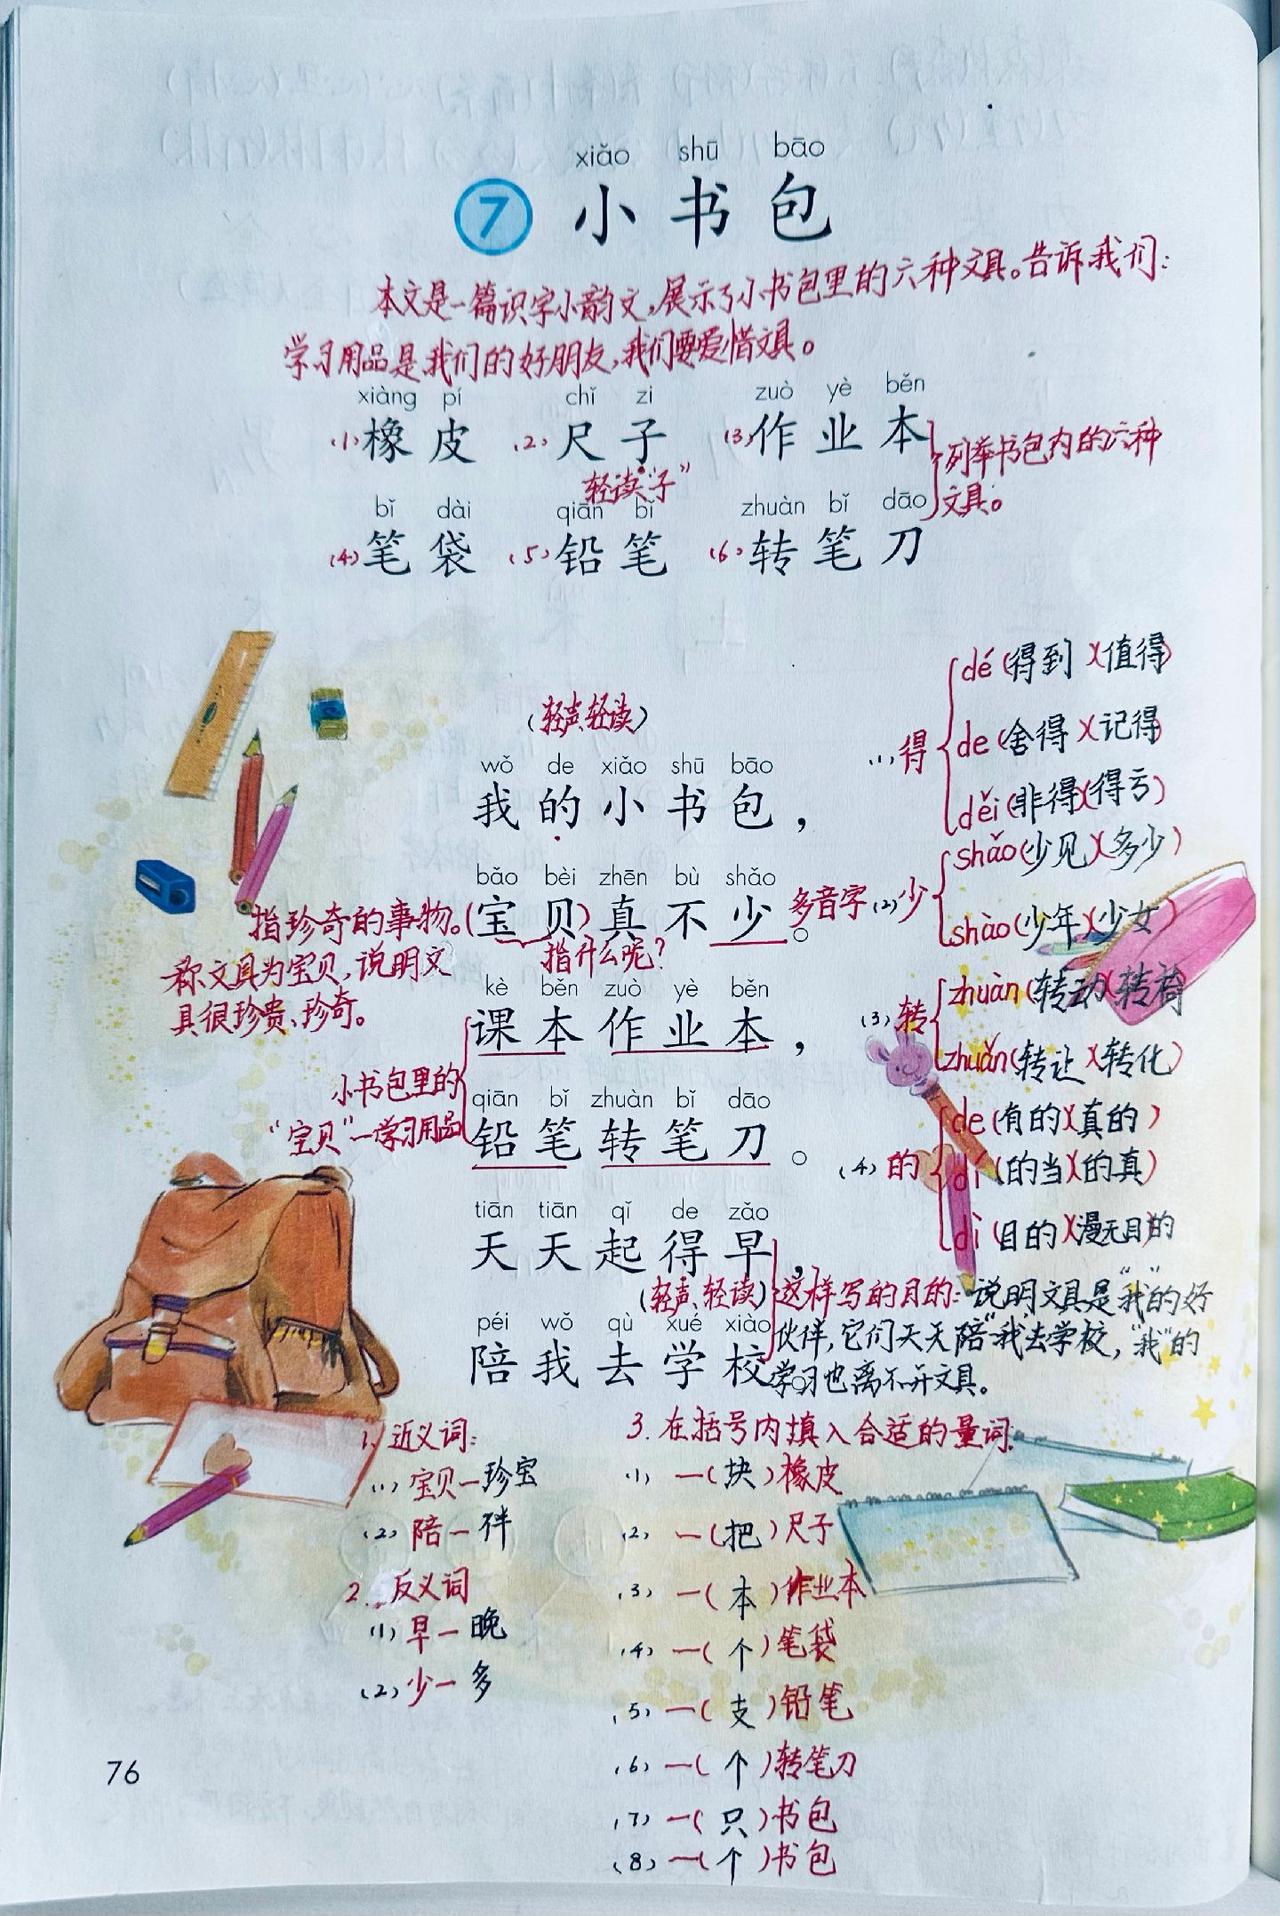 xiǎo shū bāo
7 小书包
本文是一篇识字小韵文,展示了小书包里的六种文具。告诉我们:
学习用品是我们的好朋友,我们要爱惜文具。
xiàng pí chǐ zi zuò yè běn
(1)橡皮 (2)尺子 (3)作业本
轻读“子”
列举书包内的六种
文具。
bǐ dài qiān bǐ zhuàn bǐ dāo
(4)笔袋 (5)铅笔 (6)转笔刀
(轻声,轻读)
wǒ de xiǎo shū bāo
我的小书包,
bǎo bèi zhēn bù shǎo
(宝贝)真不少。
指什么呢?
指珍奇的事物。
称文具为宝贝,说明文
具很珍贵、珍奇。
kè běn zuò yè běn
课本作业本,
小书包里的
“宝贝”—学习用品
qiān bǐ zhuàn bǐ dāo
铅笔转笔刀。
tiān tiān qǐ de zǎo
天天起得早,
(轻声、轻读)
péi wǒ qù xué xiào
陪我去学校。
这样写的目的:说明文具是“我”的好
伙伴,它们天天陪“我”去学校,“我”的
学习也离不开文具。
多音字
(1)得
dé(得到)(值得)
de(舍得)(记得)
děi(非得)(得亏)
(2)少
shǎo(少见)(多少)
shào(少年)(少女)
(3)转
zhuàn(转动)(转椅)
zhuǎn(转让)(转化)
(4)的
de(有的)(真的)
dí(的当)(的真)
dì(目的)(漫无目的
1.近义词:
(1)宝贝—珍宝
(2)陪—伴
2.反义词
(1)早—晚
(2)少—多
3.在括号内填入合适的量词:
(1)一(块)橡皮
(2)一(把)尺子
(3)一(本)作业本
(4)一(个)笔袋
(5)一(支)铅笔
(6)一(个)转笔刀
(7)一(只)书包
(8)一(个)书包
76